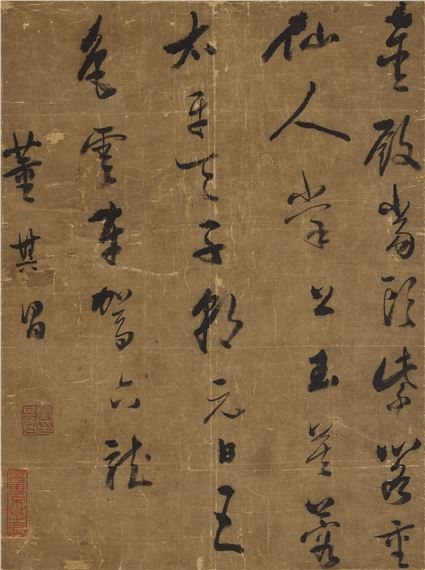 金殿當頭紫閣重
仙人掌上玉芙蓉
太平天子朝元日五
色雲車駕六龍
董其昌